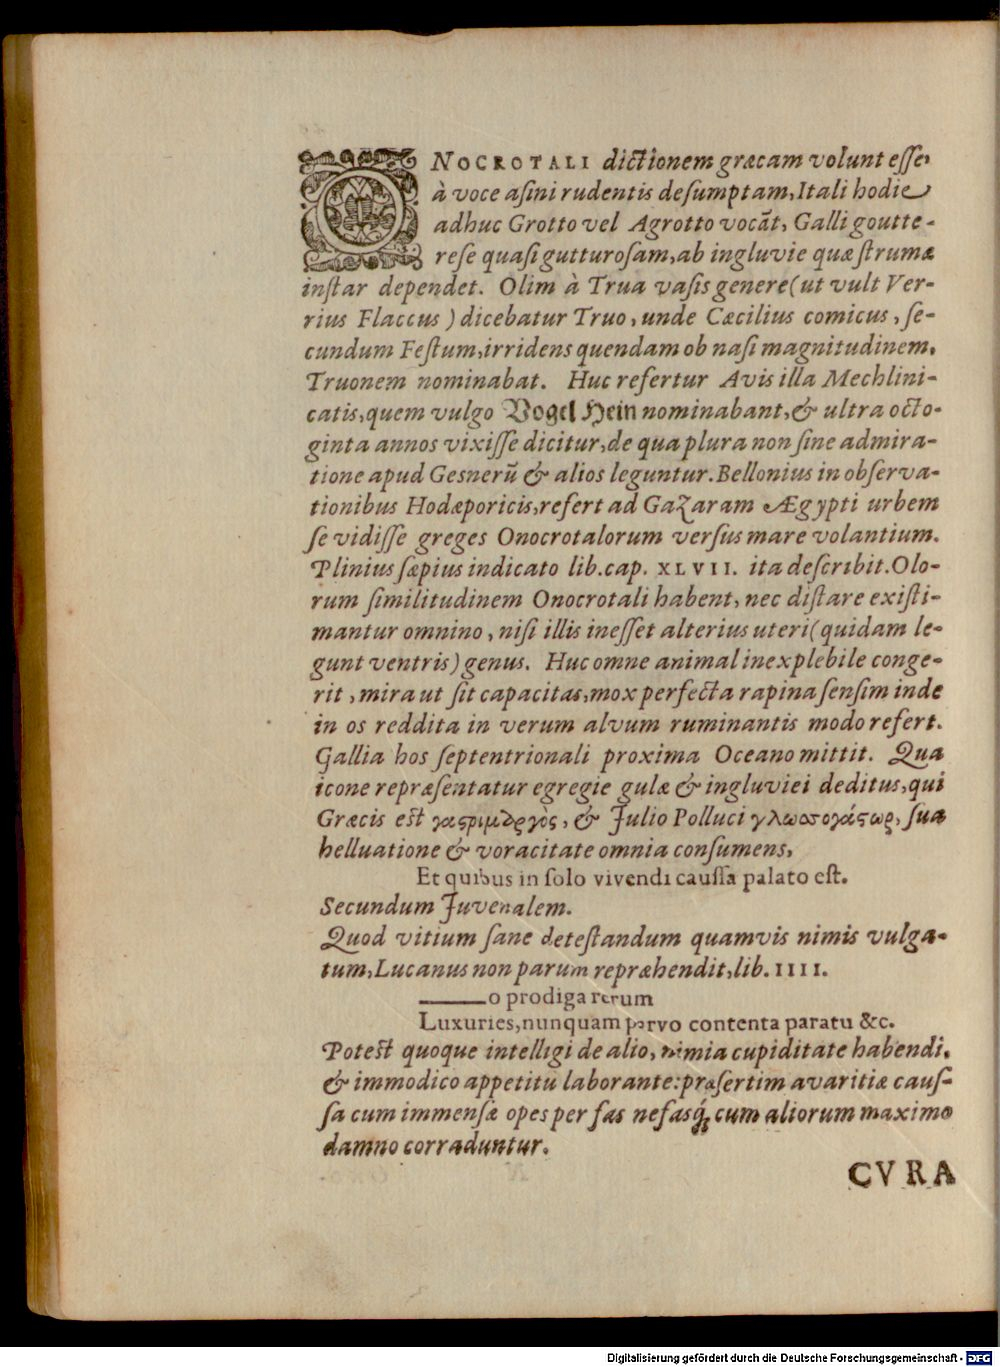 ONOCROTALI dictionem græcam volunt esse,
à voce asini rudentis desumptam, Itali hodie
adhuc Grotto vel Agrotto vocãt, Galli goutte-
rese quasi gutturosam, ab ingluvie quæ strumæ
instar dependet. Olim à Trua vasis genere (ut vult Ver-
rius Flaccus) dicebatur Truo, unde Cæcilius comicus, se-
cundum Festum, irridens quendam ob nasi magnitudinem,
Truonem nominabat. Huc refertur Avis illa Mechlini-
catis, quem vulgo Vogel Hein nominabant, & ultra octo-
ginta annos vixisse dicitur, de qua plura non sine admira-
tione apud Gesnerũ & alios leguntur. Bellonius in observa-
tionibus Hodæporicis, refert ad Gazaram Ægypti urbem
se vidisse greges Onocrotalorum versus mare volantium.
Plinius sæpius indicato lib. cap. XLVII. ita describit. Olo-
rum similitudinem Onocrotali habent, nec distare existi-
mantur omnino, nisi illis inesset alterius uteri (quidam le-
gunt ventris) genus. Huc omne animal inexplebile conge-
rit, mira ut sit capacitas, mox perfecta rapina sensim inde
in os reddita in verum alvum ruminantis modo refert.
Gallia hos septentrionali proxima Oceano mittit. Qua
icone repræsentatur egregie gulæ & ingluviei deditus, qui
Græcis est γαςριμȣργὸς, & Julio Polluci γλωσσογάςωρ, sua
helluatione & voracitate omnia consumens,
Et quibus in solo vivendi caussa palato est.
Secundum Juvenalem.
Quod vitium sane detestandum quamvis nimis vulga-
tum, Lucanus non parum repræhendit, lib. IIII.
——o prodiga rerum
Luxuries, nunquam parvo contenta paratu &c.
Potest quoque intelligi de alio, nimia cupiditate habendi,
& immodico appetitu laborante: præsertim avaritiæ caus-
sa cum immensæ opes per fas nefasq́; cum aliorum maximo
damno corraduntur.
CVRA
Digitalisierung gefördert durch die Deutsche Forschungsgemeinschaft - DFG